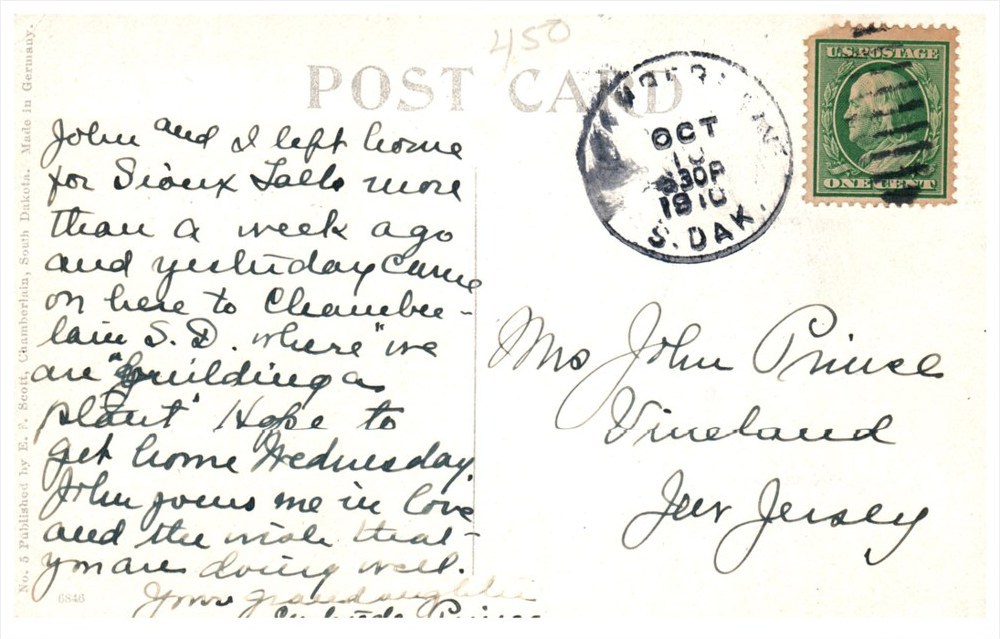 450
POST CARD
U.S. POSTAGE
ONE CENT
OCT
10
830P
1910
S. DAK.
John and I left home
for Sioux Falls more
than a week ago
and yesterday came
on here to Chamber-
lain S.D. where "we
are "building a
plant" Hope to
get home Wednesday.
John joins me in love
and the wish that
you are doing well.
Your granddaughter
Mrs John Prince
Vineland
New Jersey
No. 5 Published by E. F. Scott, Chamberlain, South Dakota. Made in Germany.
6846